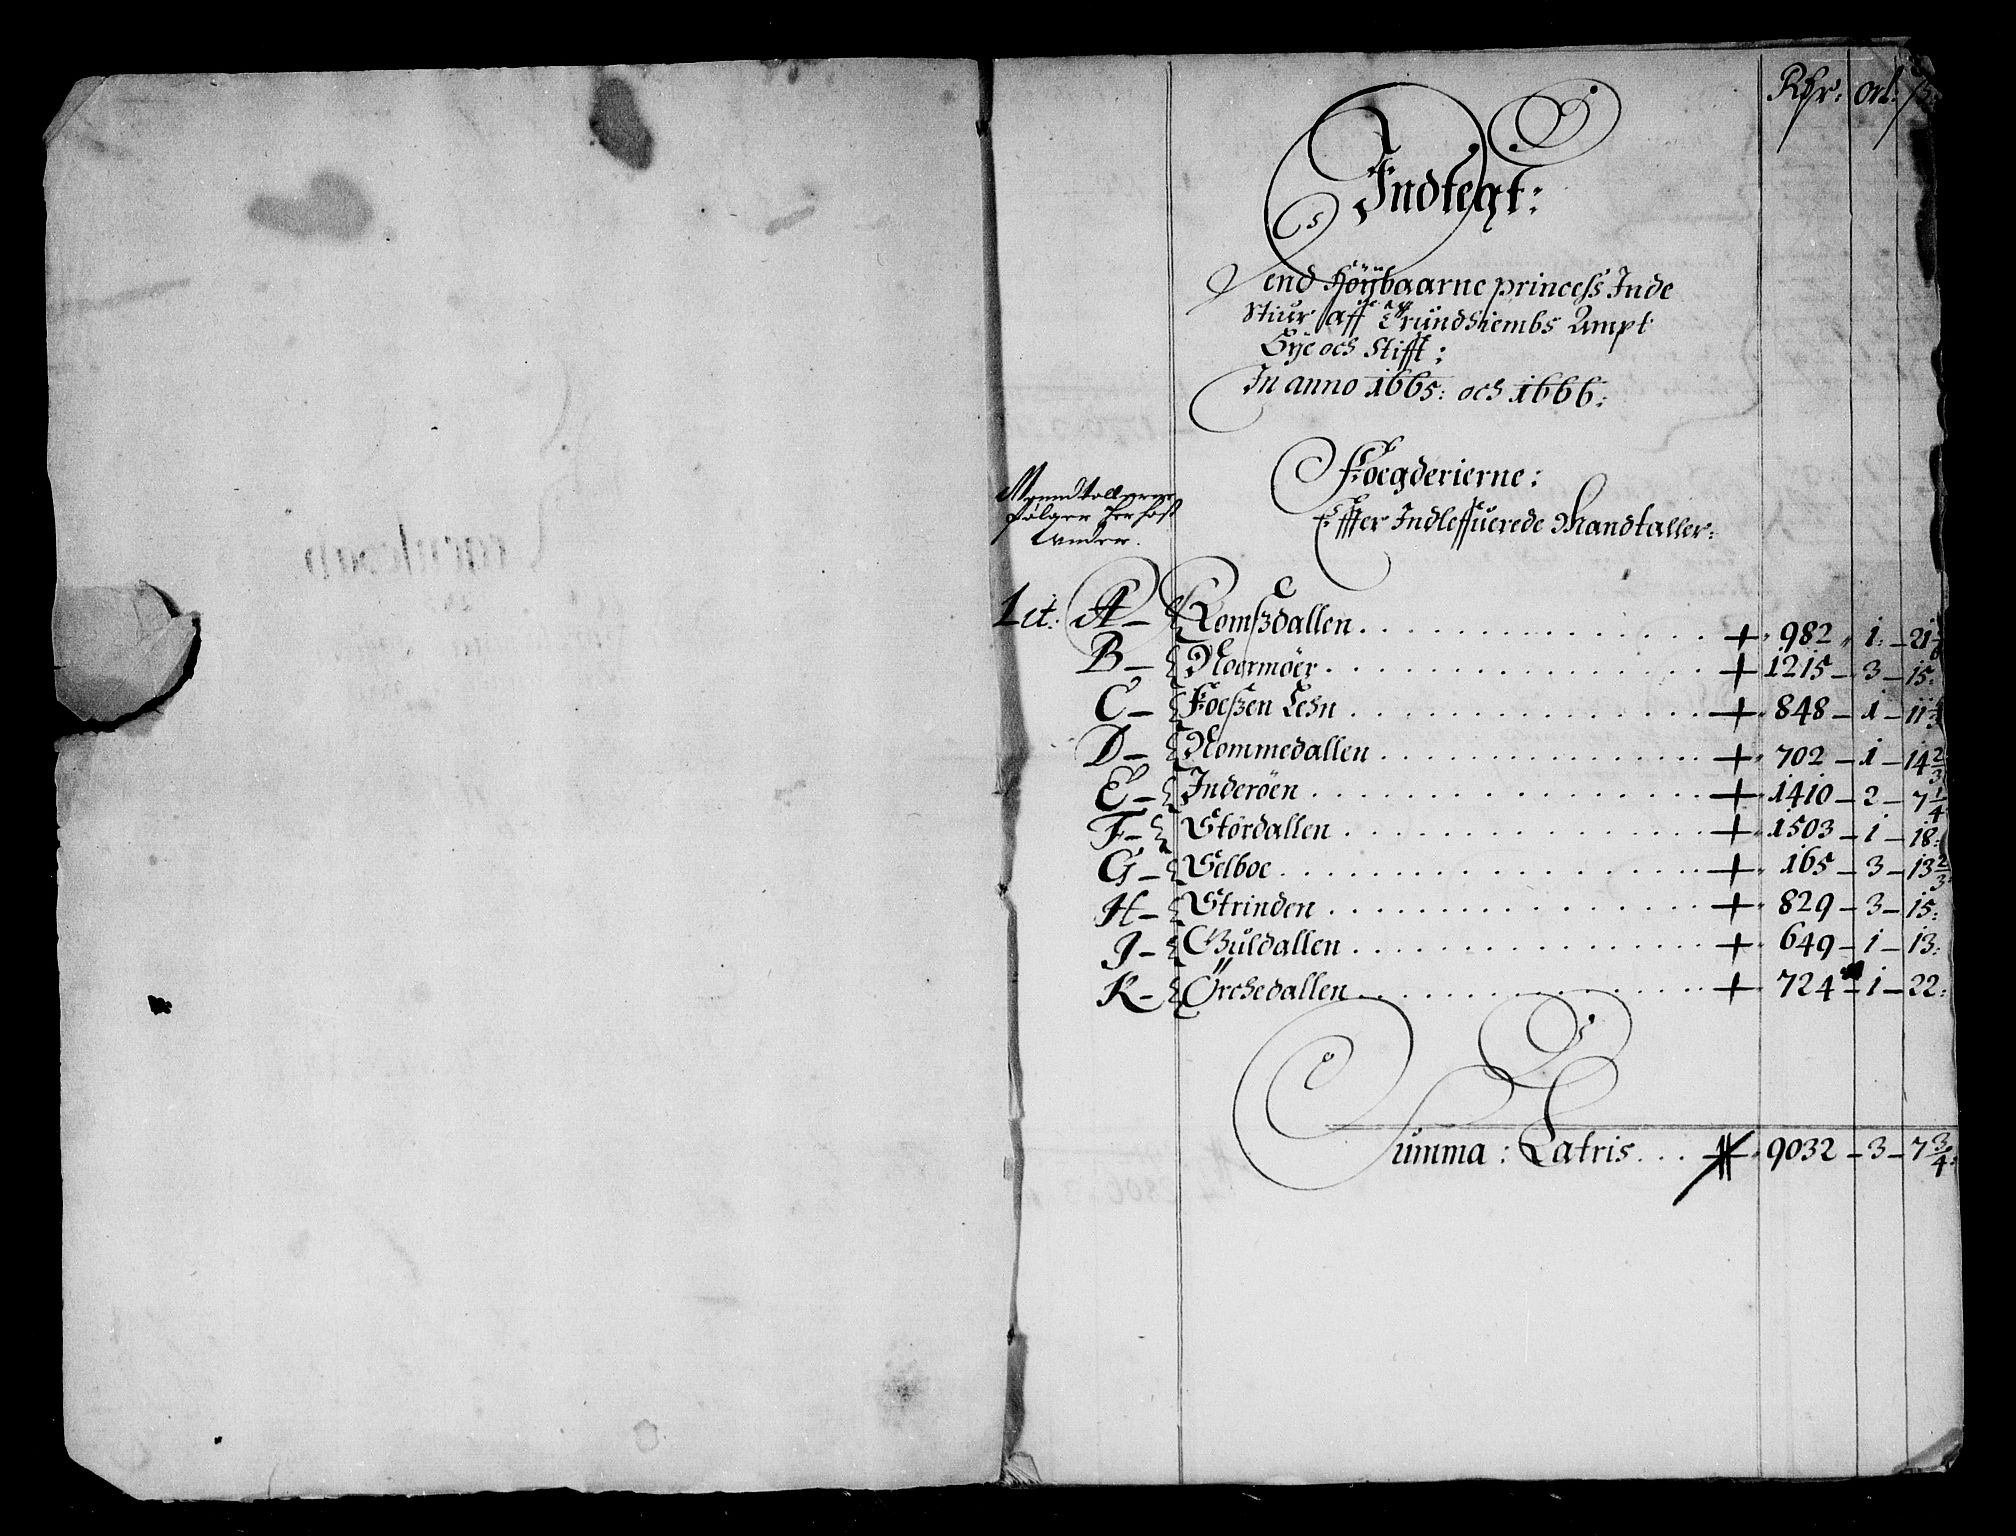 Rdr: ort: ß:
Indtegt:
end Höÿbaarne princess Inde
Stiur aff Trundhiembs Ampt
Bÿe och Stifft:
In anno 1665: och 1666:
Foegderierne:
Effter Indleffuerede Mandtaller:
Manndtallerne
følger her hos
under.
Lit: A – Romßdallen + 982 1: – 21
B – Noermöer + 1215 – 3 – 15:
C – Foeßen Lehn + 848 – 1 – 11
D – Nommedallen + 702 – 1 – 14 2/3
E – Inderöen + 1410 – 2 – 7 1/4
F – Stördallen + 1503 – 1 – 18:
G – Selboe + 165 – 3 – 13 2/3
H – Strinden + 829 – 3 – 15:
J – Guldallen + 649 – 1 – 13:
K – Örchedallen + 724 – 1 – 22:
Summa: Latris 9032 – 3 – 7 3/4: